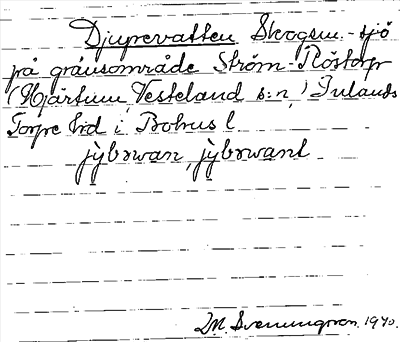 Djupevatten Skogsm.-sjö
på gränsområde Ström-Röstorp
(Hjärtum, Vesteland s:n,) Inlands
Torpe hd i Bohus l.
jỳbəwan, jỳbəwant
M. Svenungsson. 1940.